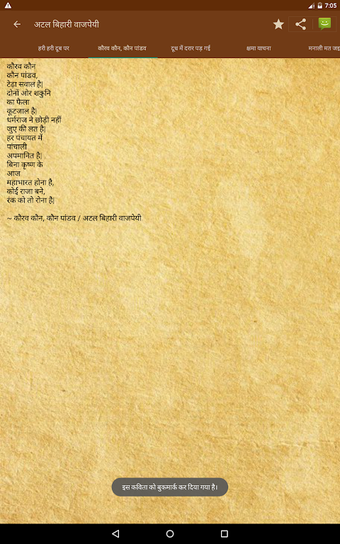 7:05
अटल बिहारी वाजपेयी
हरी हरी दूब पर
कौरव कौन, कौन पांडव
दूध में दरार पड़ गई
क्षमा याचना
मनाली मत जइ
कौरव कौन
कौन पांडव,
टेढ़ा सवाल है|
दोनों ओर शकुनि
का फैला
कूटजाल है|
धर्मराज ने छोड़ी नहीं
जुए की लत है|
हर पंचायत में
पांचाली
अपमानित है|
बिना कृष्ण के
आज
महाभारत होना है,
कोई राजा बने,
रंक को तो रोना है|
~ कौरव कौन, कौन पांडव / अटल बिहारी वाजपेयी
इस कविता को बुकमार्क कर दिया गया है।